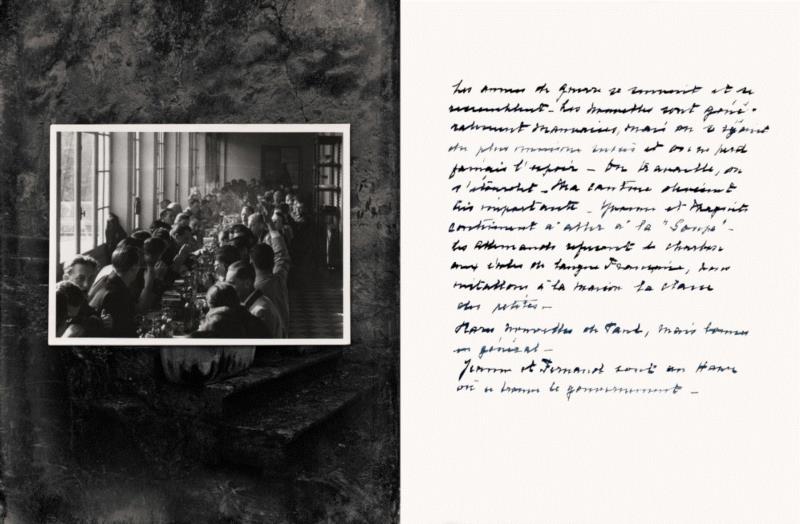 Les années de guerre se suivent et se
ressemblent - Les nouvelles sont géné-
ralement mauvaises, mais on se réjouit
des plus minimes succès et on ne perd
jamais l'espoir - On travaille, on
s'étourdit - Ma cantine devient
très importante - Yvonne et
continuent à aller à la "Soupe" -
les Allemands refusent le charbon
aux écoles de langue Française, nous
installons à la maison la classe
des petites -
Rares nouvelles de Paul, mais bonnes
en général -
Jeanne et Fernand sont au Havre
où se trouve le gouvernement -